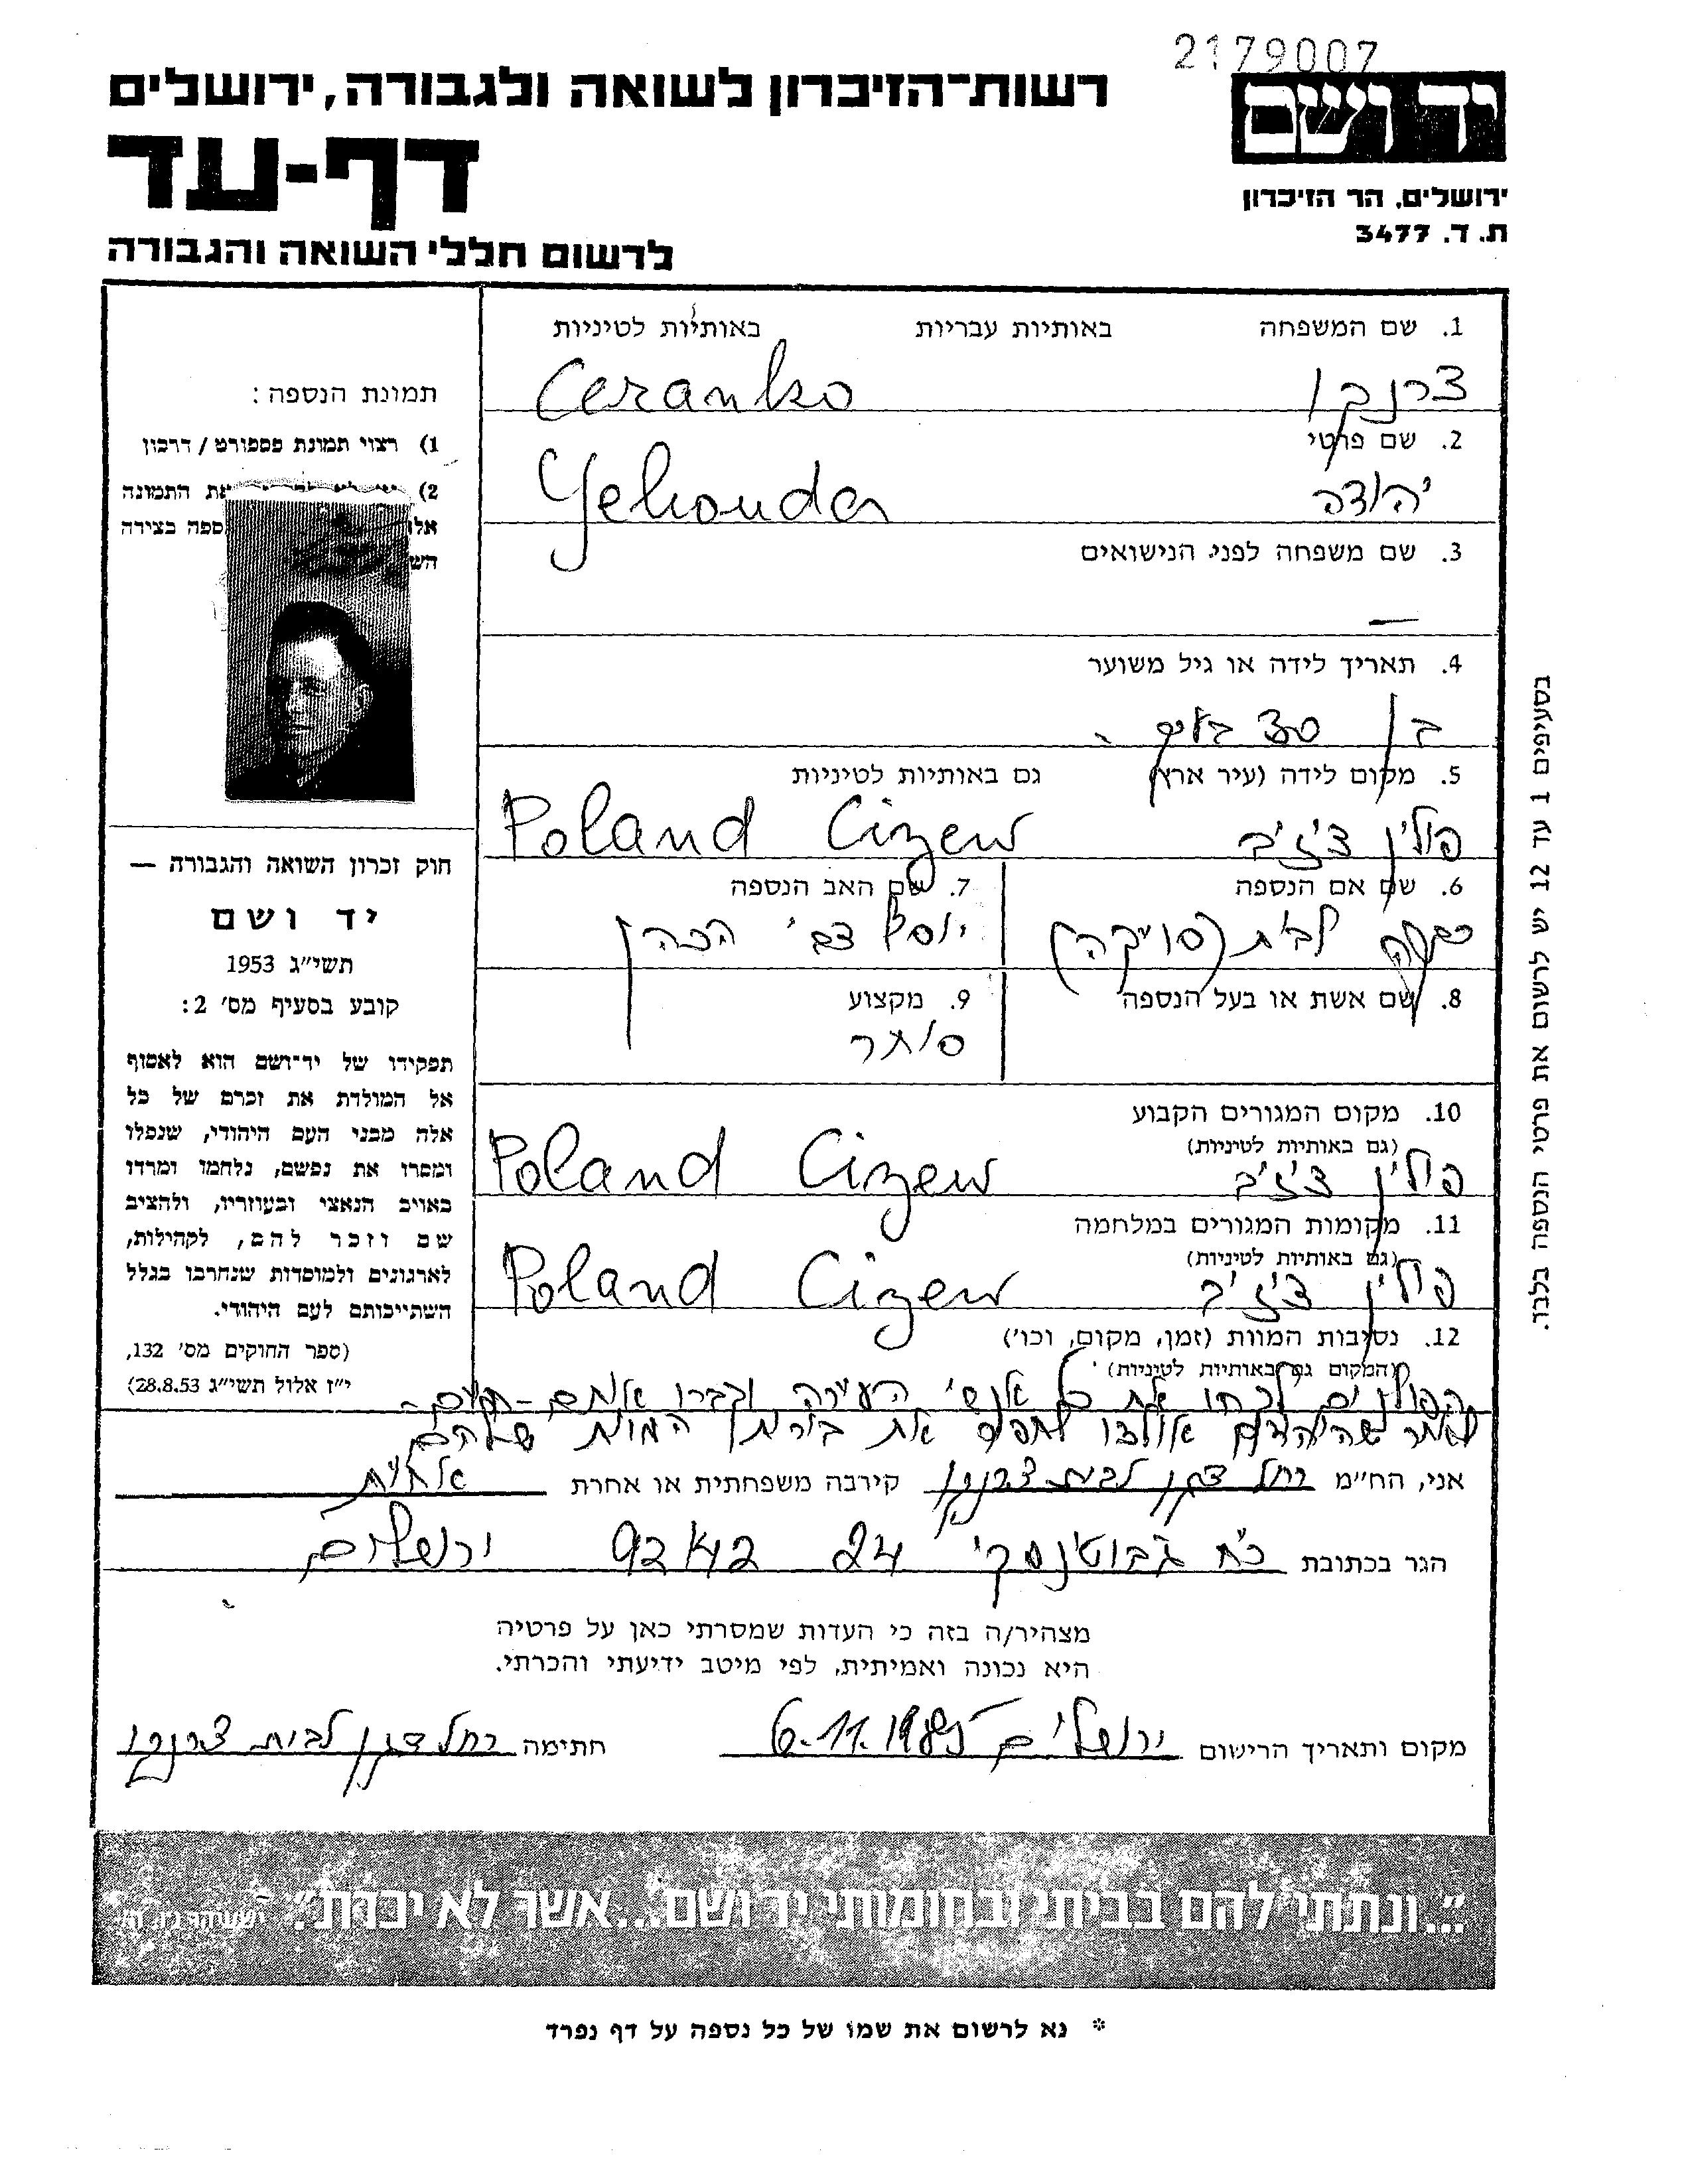 2179007
רשות־הזיכרון לשואה ולגבורה, ירושלים
יד ושם
דף-עד
ירושלים, הר הזיכרון
ת. ד. 3477
לרשום חללי השואה והגבורה
1. שם המשפחה באותיות עבריות באותיות לטיניות
צרנקו Ceranko
2. שם פרטי
יהודה Yehouda
3. שם משפחה לפני הנישואים
—
4. תאריך לידה או גיל משוער
בן
5. מקום לידה (עיר ארץ) גם באותיות לטיניות
פולין צ'ז'ב Poland Cizew
6. שם אם הנספה
לבית (סויקה)
7. שם האב הנספה
יוסף צבי הכהן
8. שם אשת או בעל הנספה
9. מקצוע
סוחר
10. מקום המגורים הקבוע
(גם באותיות לטיניות)
פולין צ'ז'ב Poland Cizew
11. מקומות המגורים במלחמה
(גם באותיות לטיניות)
פולין צ'ז'ב Poland Cizew
12. נסיבות המוות (זמן, מקום, וכו')
(המקום גם באותיות לטיניות)
הפולנים לקחו את כל אנשי העירה וקברו אותם - חיים -
לאחר שהיהודים אולצו לחפור את בורות המוות שלהם
אני, הח״מ רחל דגן לבית צרנקו קירבה משפחתית או אחרת אחות
הגר בכתובת ז'בוטנסקי 24 92142 ירושלים
מצהיר/ה בזה כי העדות שמסרתי כאן על פרטיה
היא נכונה ואמיתית, לפי מיטב ידיעתי והכרתי.
מקום ותאריך הרישום ירושלים 6.11.1985 חתימה רחל דגן לבית צרנקו
תמונת הנספה:
1) רצוי תמונת פספורט / דרכון
2) את התמונה
אלו ספה בצידה
הש
חוק זכרון השואה והגבורה —
יד ושם
תשי״ג 1953
קובע בסעיף מס' 2:
תפקידו של יד־ושם הוא לאסוף
אל המולדת את זכרם של כל
אלה מבני העם היהודי, שנפלו
ומסרו את נפשם, נלחמו ומרדו
באויב הנאצי ובעוזריו, ולהציב
שם וזכר להם, לקהילות,
לארגונים ולמוסדות שנחרבו בגלל
השתייכותם לעם היהודי.
(ספר החוקים מס' 132,
י״ז אלול תשי״ג 28.8.53)
בסעיפים 1 עד 12 יש לרשום את פרטי הנספה בלבד.
״...ונתתי להם בביתי ובחומותי יד ושם...אשר לא יכרת״. ישעיהו נו, ה'
* נא לרשום את שמו של כל נספה על דף נפרד